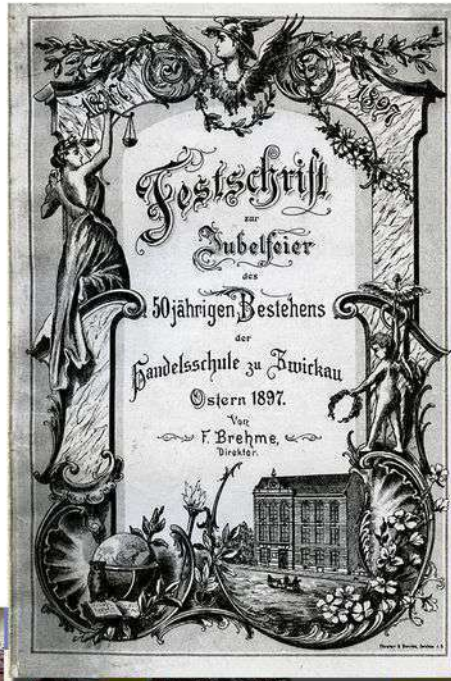 1847
1897
Festschrift
zur
Jubelfeier
des
50jährigen Bestehens
der
Handelsschule zu Zwickau
Ostern 1897.
Von
F. Brehme,
Direktor.